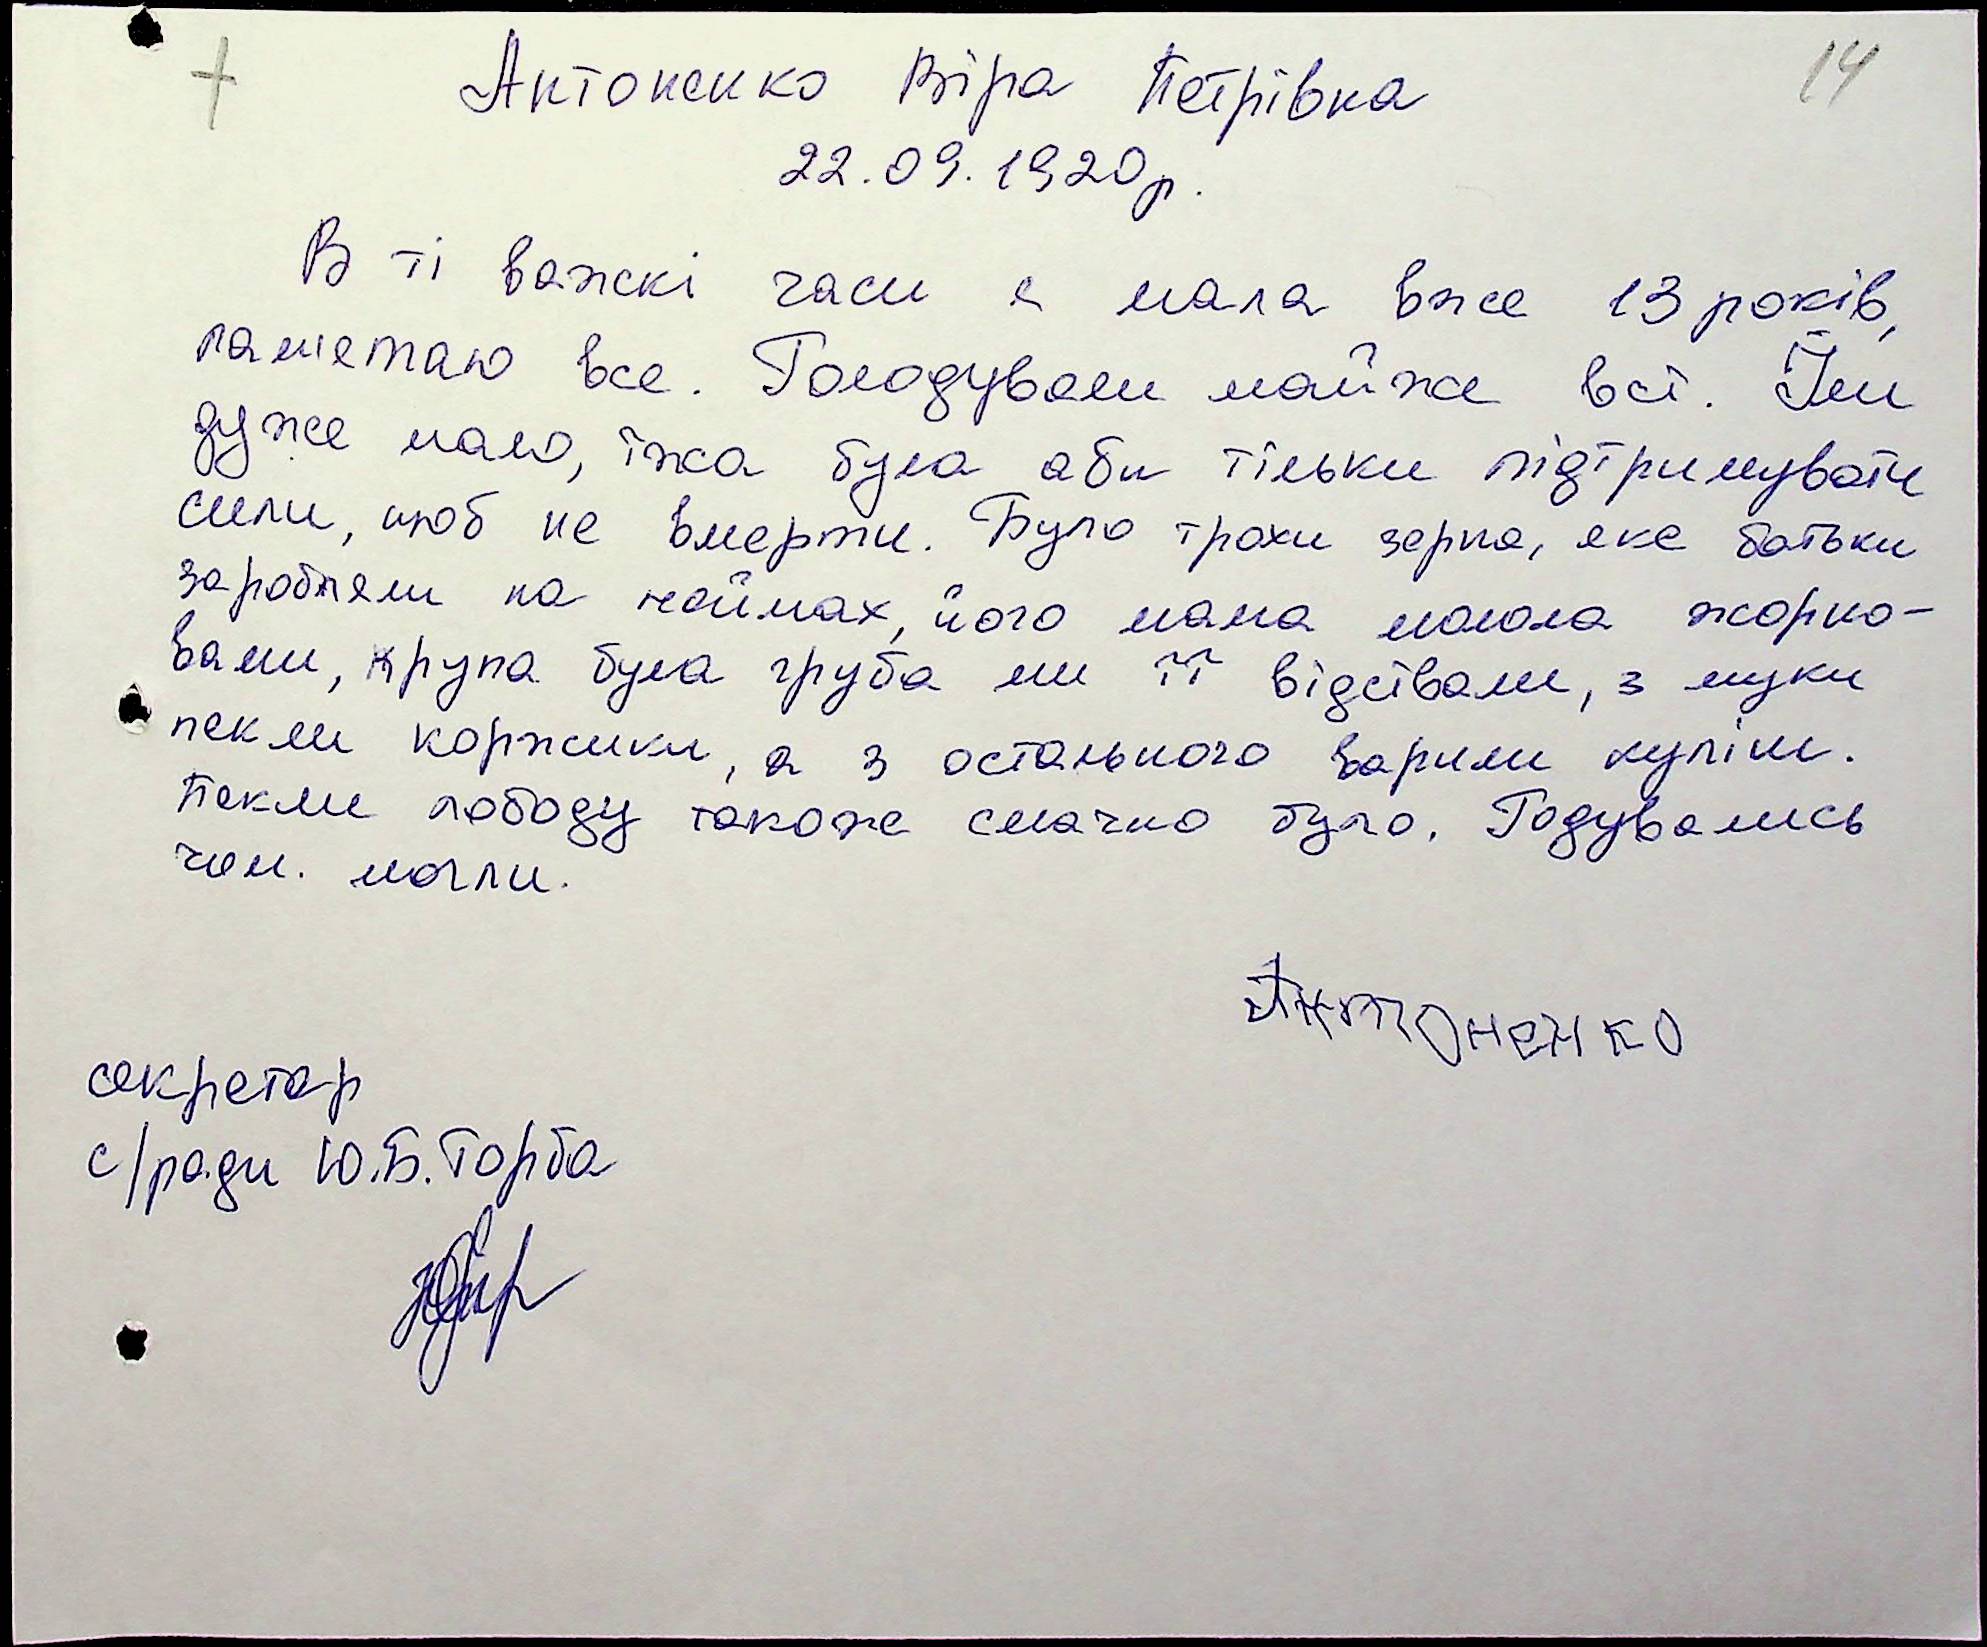 + Антоненко Віра Петрівна 14
22.09.1920р.
В ті важкі часи я мала вже 13 років,
памʼятаю все. Голодували майже всі. Їли
дуже мало, їжа була аби тільки підтримувати
сили, щоб не вмерти. Було трохи зерна, яке батьки
заробляли на наймах, його мама молола жорно-
вами, крупа була груба ми її відсівали, з муки
пекли коржики, а з остального варили куліш.
Пекли лободу також смачно було. Годувались
чим. могли.
Антоненко
секретар
с/ради Ю.Б. Торба